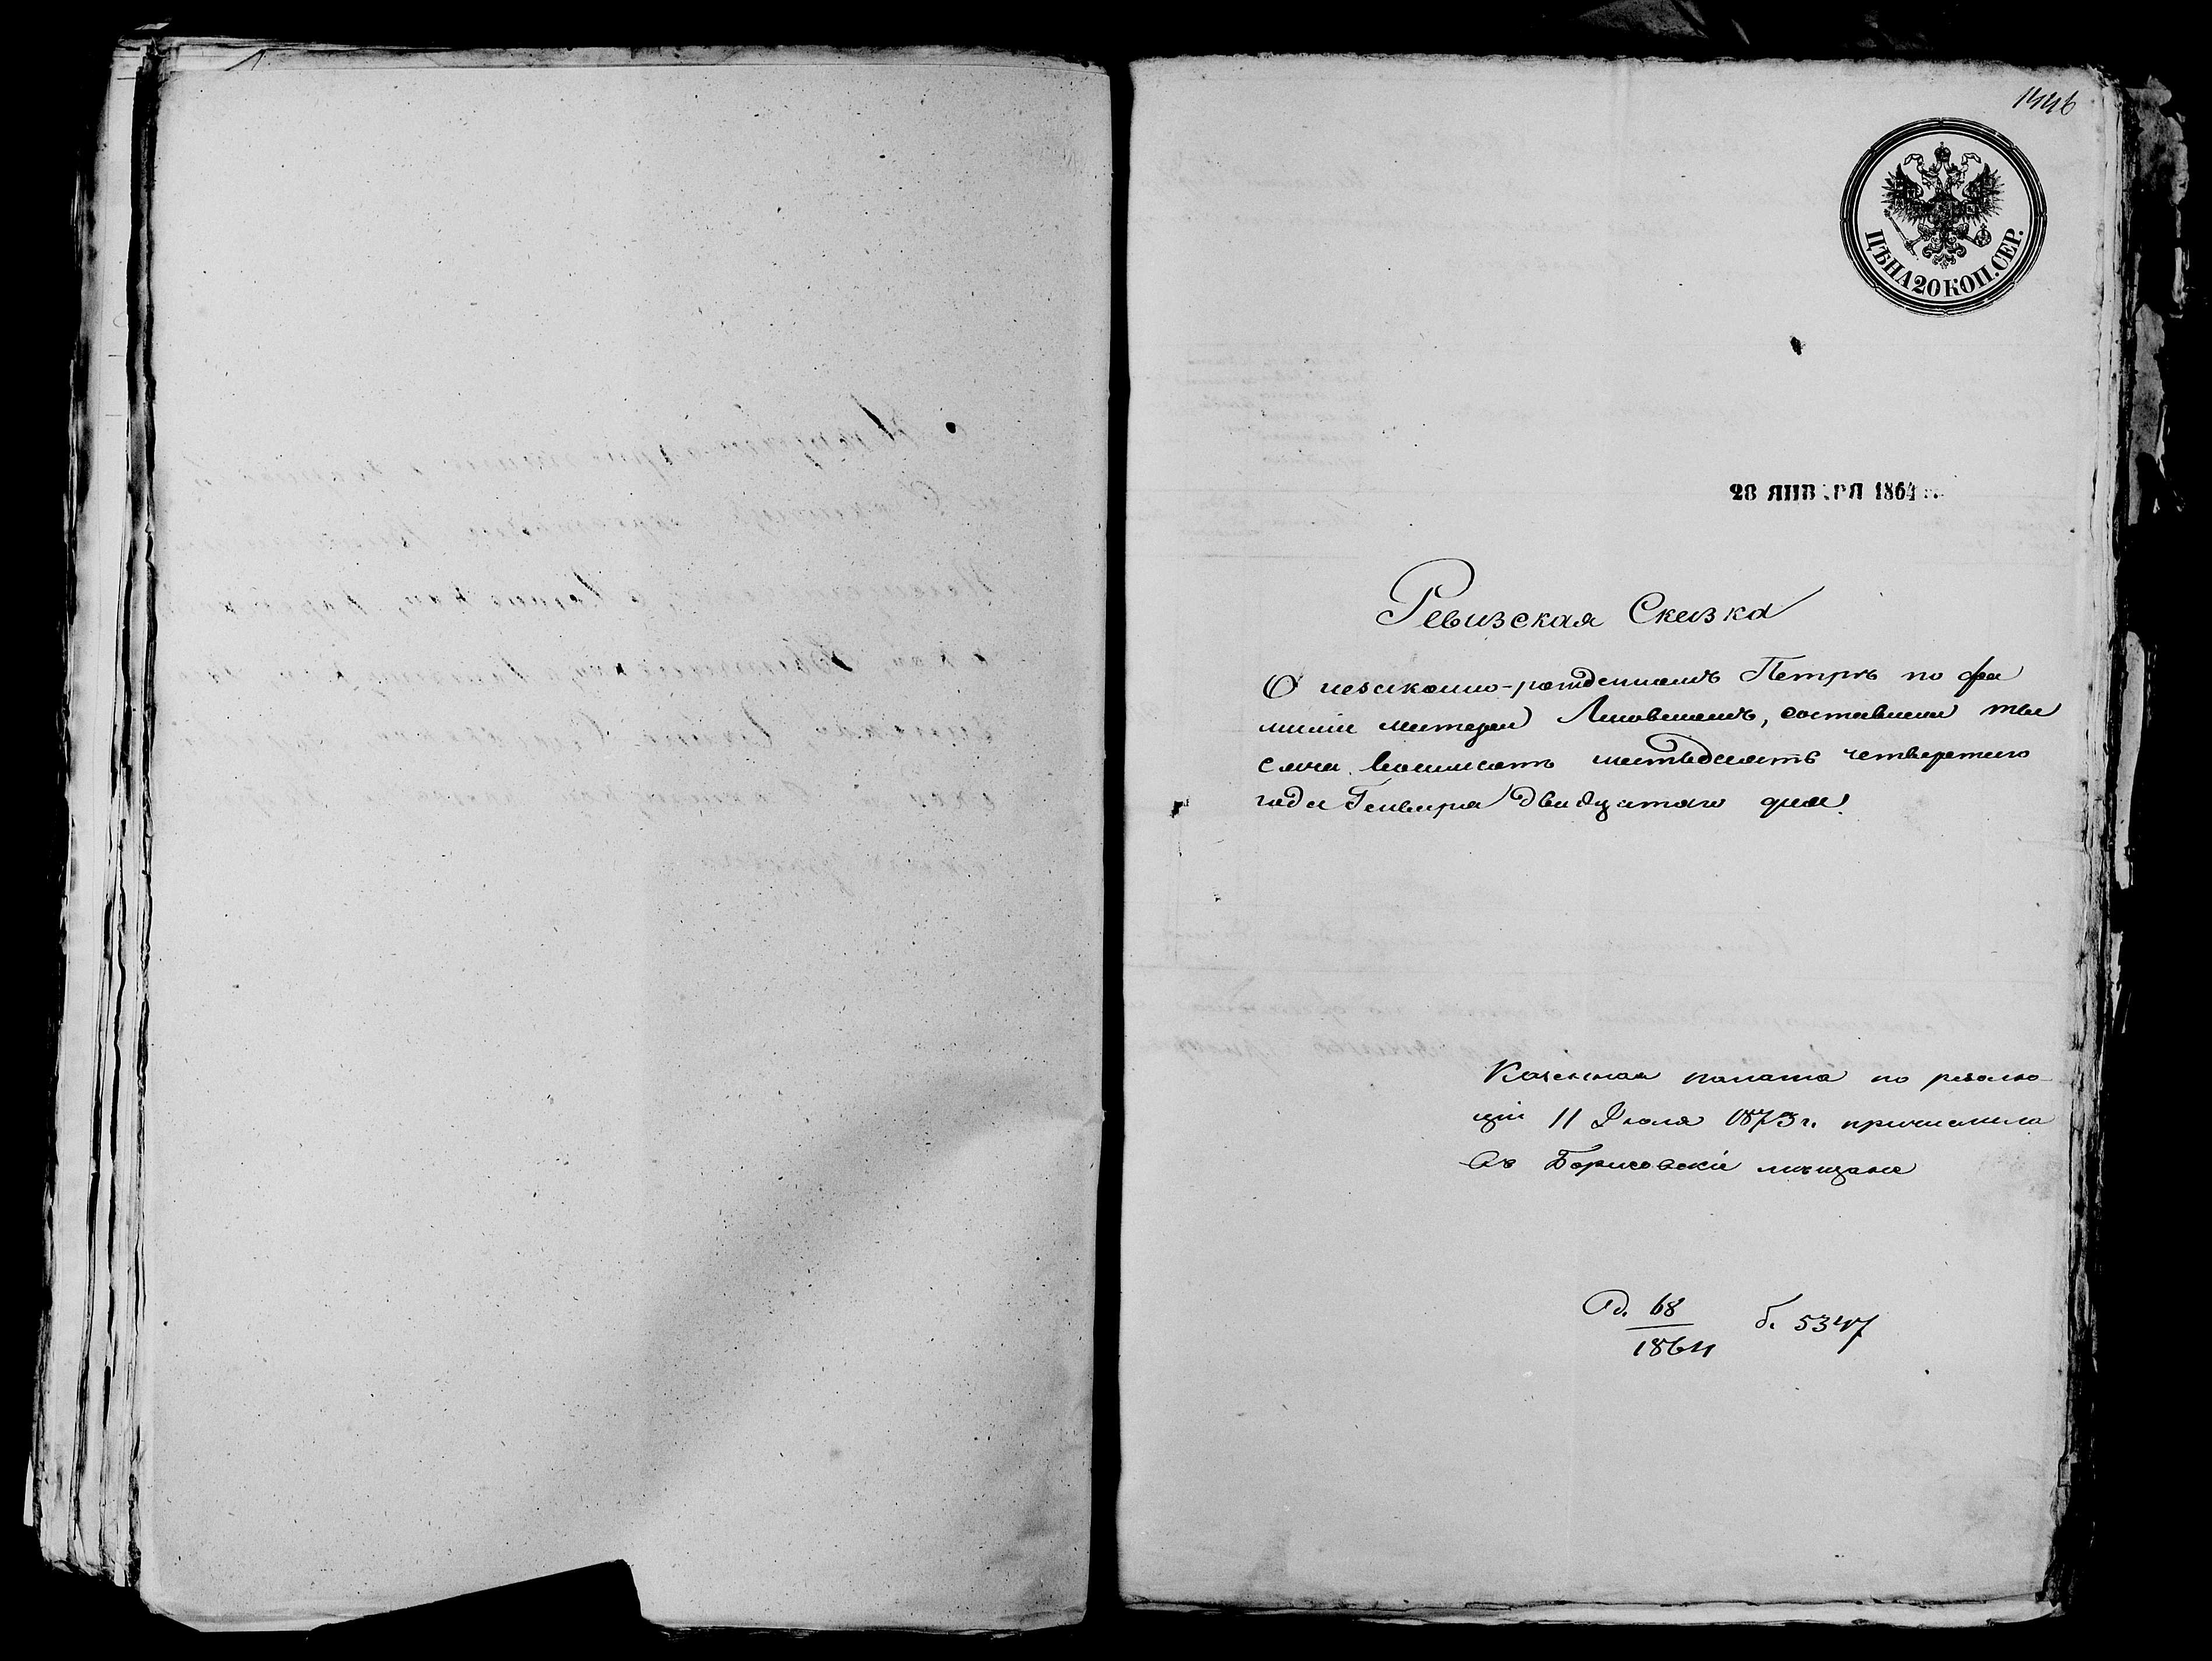 1446
ЦѢНА 20 КОП. СЕР.
28 ЯНВАРЯ 1864 г.
Ревизская Сказка
О незаконно-рожденномъ Петрѣ по фа
миліи матери, составленная тыся
сяча восемьсотъ шестьдесятъ четвертаго
года Генваря двадцатаго дня.
Казенная палата по резолю
ціи 11 Іюля 1873 г. причислила
въ Борисовскіе мѣщане
Ад. 68
1864
б. 5347